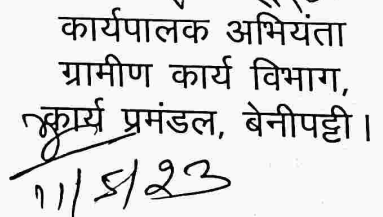 कार्यपालक अभियंता
ग्रामीण कार्य विभाग,
कार्य प्रमंडल, बेनीपट्टी।
11/5/23